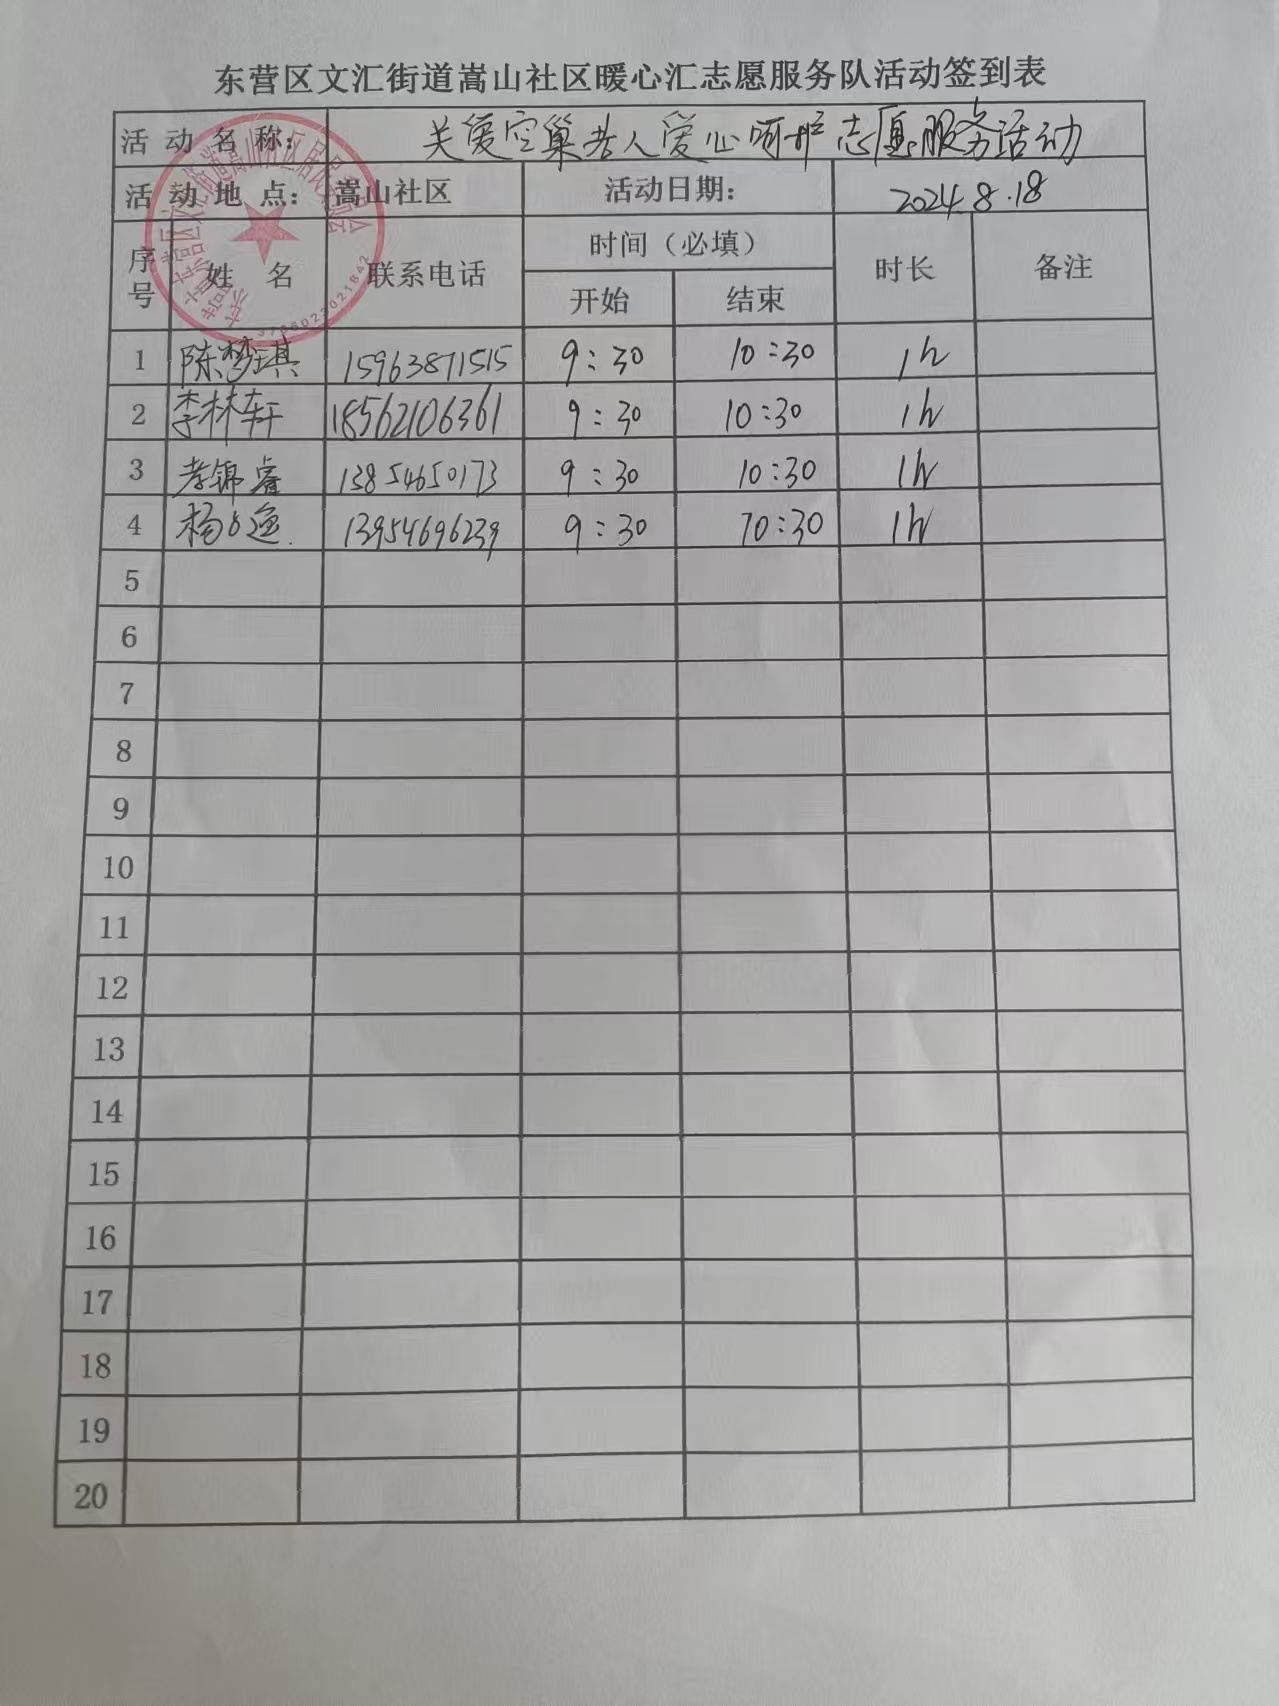 东营区文汇街道嵩山社区暖心汇志愿服务队活动签到表
活动名称： 关爱空巢老人爱心呵护志愿服务活动
活动地点： 嵩山社区 活动日期： 2024.8.18
序号 姓名 联系电话 时间（必填） 时长 备注
开始 结束
1 陈梦琪 15963871515 9:30 10:30 1h
2 李林轩 18562106361 9:30 10:30 1h
3 李锦睿 13854650173 9:30 10:30 1h
4 杨 逸 13954696239 9:30 10:30 1h
5
6
7
8
9
10
11
12
13
14
15
16
17
18
19
20